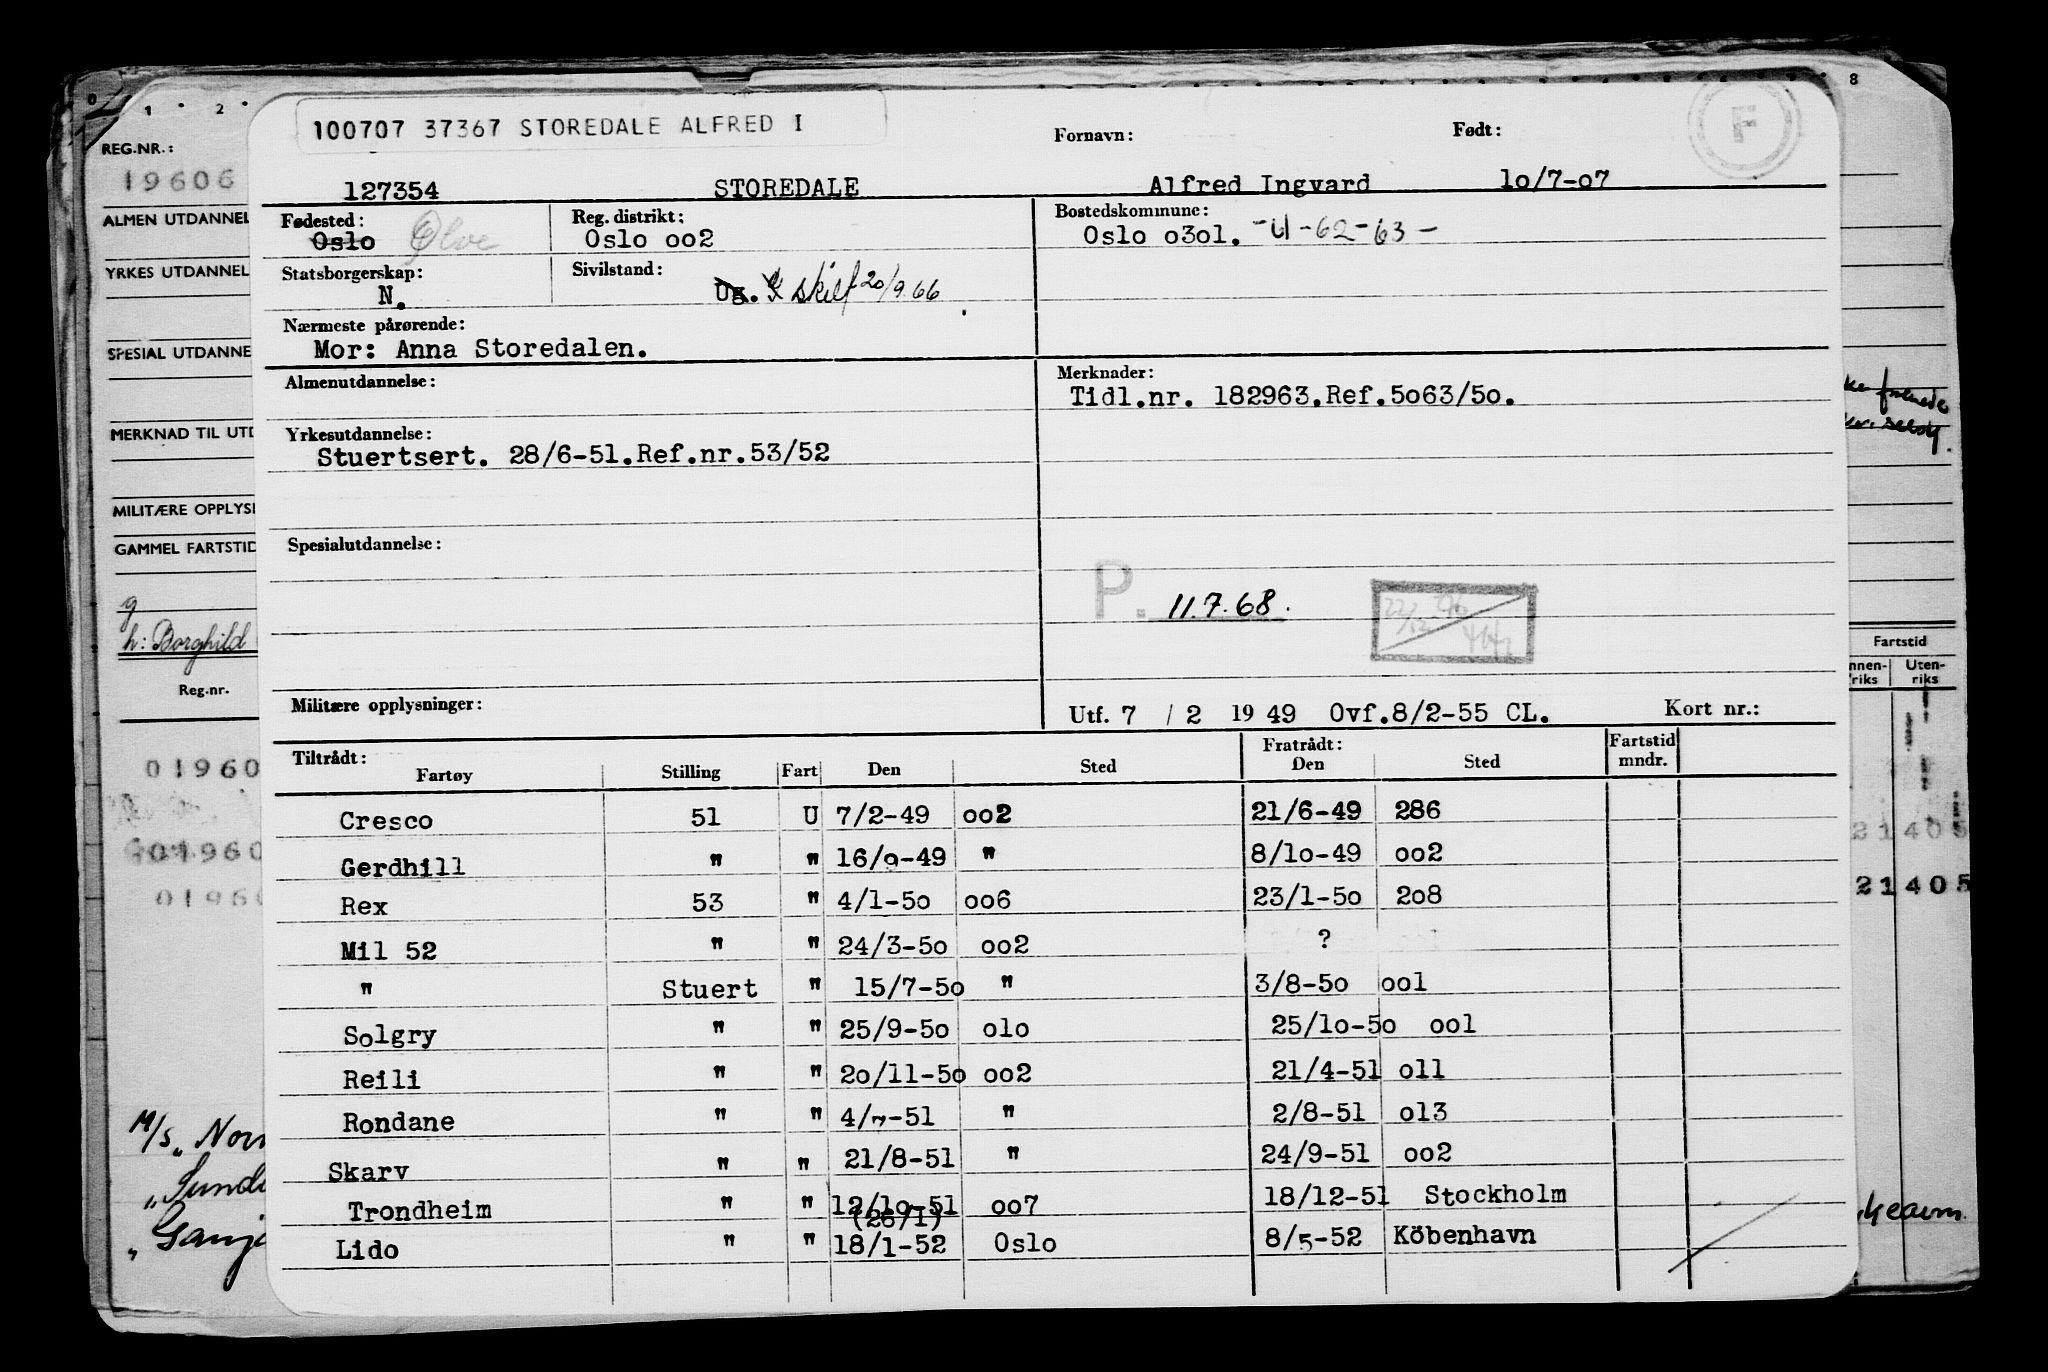 0 1 2 8
100707 37367 STOREDALE ALFRED I
Fornavn: Født: F
REG.NR.:
19606
127354 STOREDALE Alfred Ingvard 10/7-07
ALMEN UTDANNEL
Fødested: Reg. distrikt: Bostedskommune:
Oslo Ølve Oslo oo2 Oslo o3ol. -U-62-63-
YRKES UTDANNEL
Statsborgerskap: Sivilstand:
N. Ug. skilt 20/9.66
Nærmeste pårørende:
Mor: Anna Storedalen.
SPESIAL UTDANNE
Almenutdannelse: Merknader:
Tidl.nr. 182963.Ref.5o63/5o.
MERKNAD TIL UTD
Yrkesutdannelse:
Stuertsert. 28/6-51.Ref.nr.53/52
MILITÆRE OPPLYS
GAMMEL FARTSTID
Spesialutdannelse:
P. 11.7.68.
g
h: Borghild
Fartstid
nnen- riks Uten- riks
Reg.nr.
Militære opplysninger: Utf. 7 / 2 19 49 Ovf.8/2-55 CL. Kort nr.:
Tiltrådt: Fratrådt: Fartstid
Fartøy Stilling Fart Den Sted Den Sted mndr.
01960
Cresco 51 U 7/2-49 oo2 21/6-49 286
21405
01960
Gerdhill " " 16/9-49 " 8/10-49 oo2
01960
Rex 53 " 4/1-5o oo6 23/1-5o 2o8
21405
Mil 52 " " 24/3-5o oo2 ?
" Stuert " 15/7-5o " 3/8-5o ool
Solgry " " 25/9-5o olo 25/lo-5o ool
Reili " " 2o/11-5o oo2 21/4-51 oll
Rondane " " 4/7-51 " 2/8-51 ol3
M/S "Nor
Skarv " " 21/8-51 " 24/9-51 oo2
Trondheim " " 12/10-51 oo7 18/12-51 Stockholm
(26/1)
Lido " " 18/1-52 Oslo 8/5-52 Köbenhavn